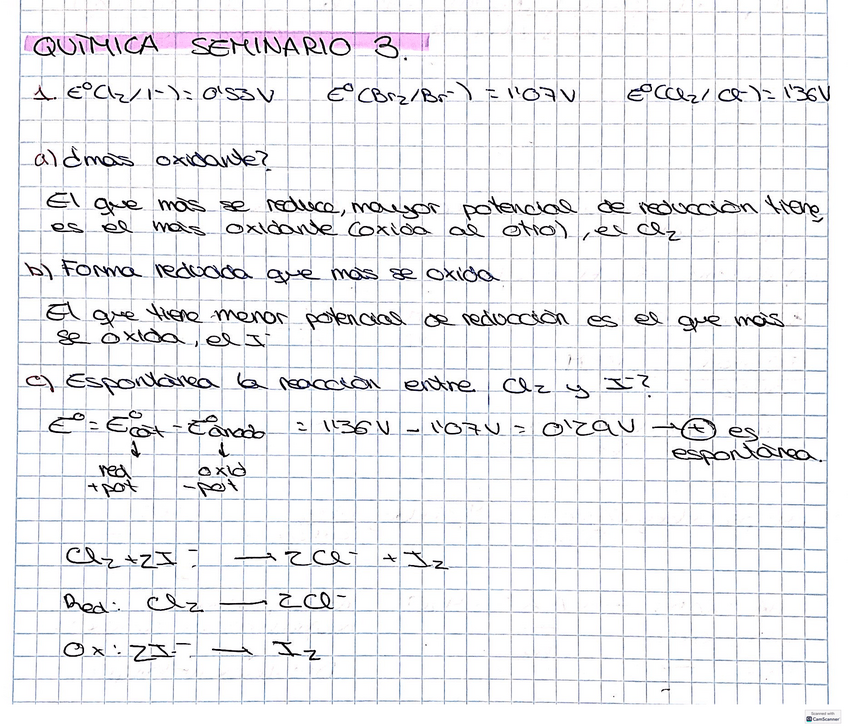 QUÍMICA SEMINARIO 3.
1. Eº(I₂/I⁻) = 0'53V Eº(Br₂/Br⁻) = 1'07V Eº(Cl₂/Cl⁻) = 1'36V
a) ¿más oxidante?
El que más se reduce, mayor potencial de reducción tiene,
es el más oxidante (oxida al otro), el Cl₂
b) Forma reducida que más se oxida
El que tiene menor potencial de reducción es el que más
se oxida, el I⁻
c) Espontánea la reacción entre Cl₂ y I⁻?
Eº = Eºcát - Eºánodo = 1'36V - 1'07V = 0'29V → (+) es
espontánea.
↓ ↓
red oxid
+pot -pot
Cl₂ + 2I⁻ → 2Cl⁻ + I₂
Red: Cl₂ → 2Cl⁻
Ox: 2I⁻ → I₂
Scanned with
CamScanner